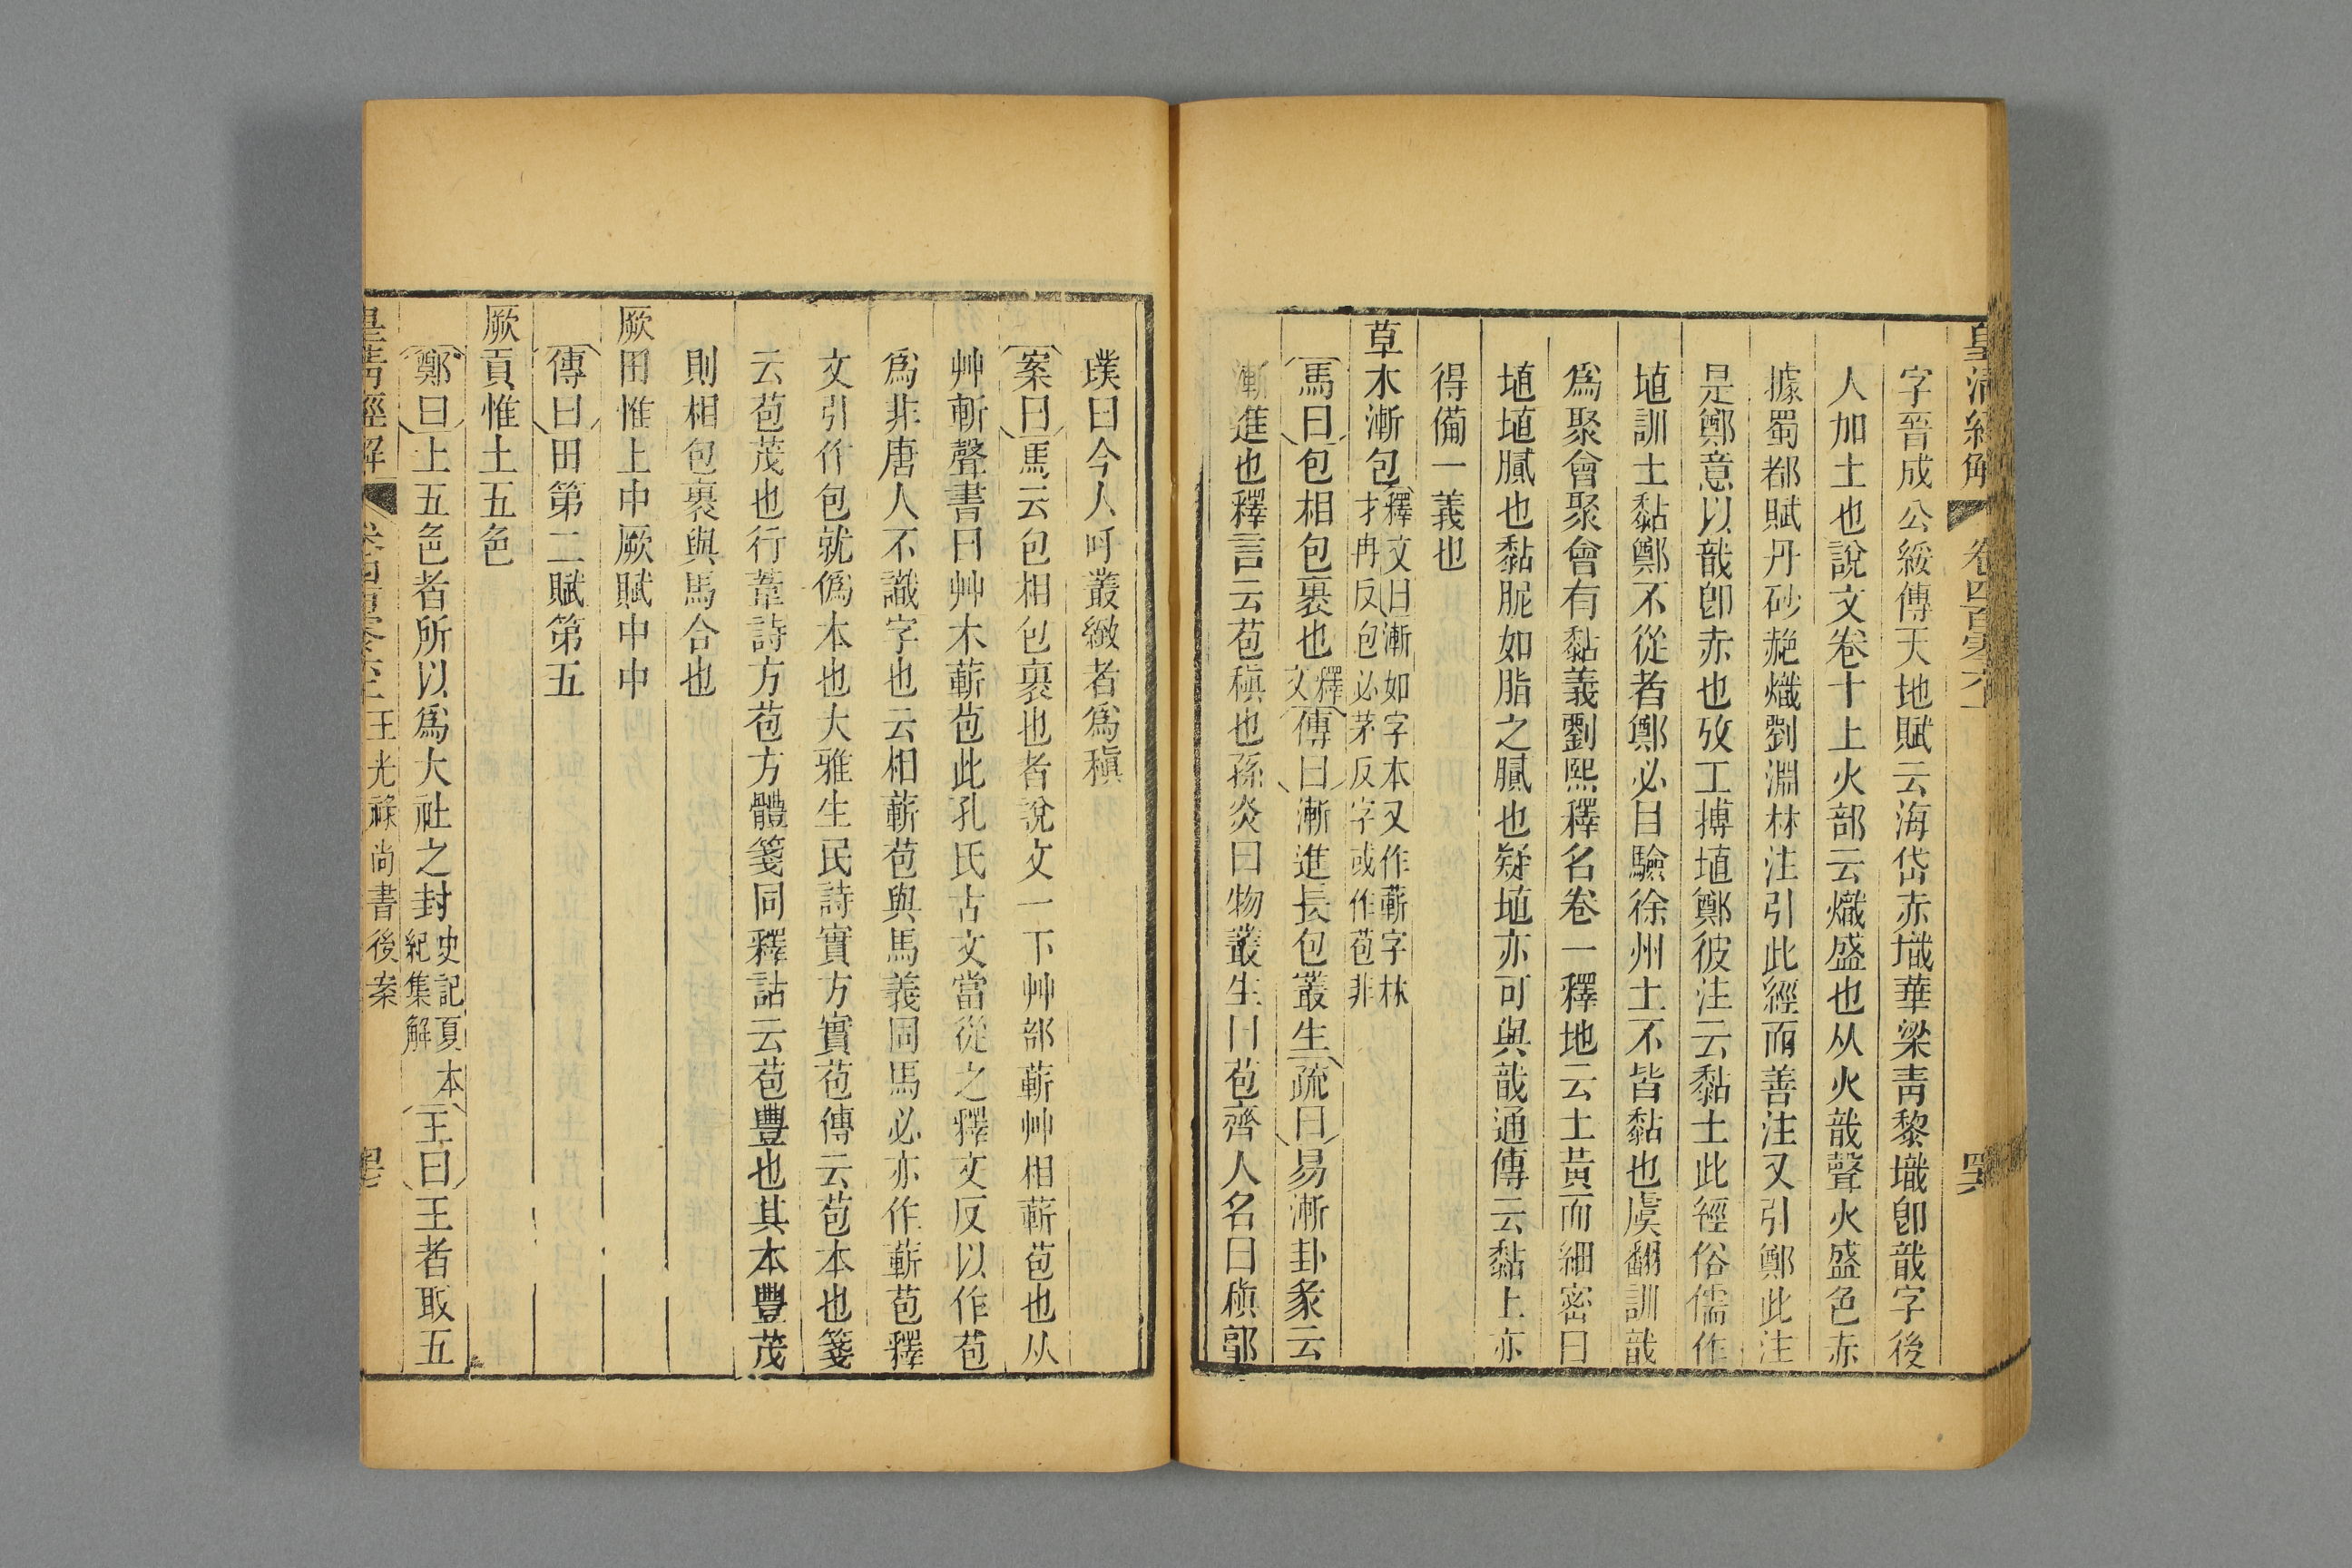 皇清經解 卷四百零六
字晉成公綏傳天地賦云海岱赤墄華梁青黎墄卽戠字後
人加土也說文卷十上火部云熾盛也从火戠聲火盛色赤
據蜀都賦丹砂赩熾劉淵林注引此經而善注又引鄭此注
是鄭意以戠卽赤也攷工摶埴鄭彼注云黏土此經俗儒作
埴訓土黏鄭不從者鄭必目驗徐州土不皆黏也虞翻訓戠
爲聚會聚會有黏義劉熙釋名卷一釋地云土黃而細密曰
埴埴膩也黏胒如脂之膩也疑埴亦可與戠通傳云黏土亦
得備一義也
草木漸包釋文曰漸如字本又作蔪字林才冉反包必茅反字或作苞非
馬曰包相包裹也釋文傳曰漸進長包叢生疏曰易漸卦彖云
漸進也釋言云苞稹也孫炎曰物叢生曰苞齊人名曰稹郭
璞曰今人呼叢緻者爲稹
案曰馬云包相包裹也者說文一下艸部蔪艸相蔪苞也从
艸斬聲書曰艸木蔪苞此孔氏古文當從之釋文反以作苞
爲非唐人不識字也云相蔪苞與馬義同馬必亦作蔪苞釋
文引作包就僞本也大雅生民詩實方實苞傳云苞本也箋
云苞茂也行葦詩方苞方體箋同釋詁云苞豐也其本豐茂
則相包裹與馬合也
厥田惟上中厥賦中中
傳曰田第二賦第五
厥貢惟土五色
鄭曰土五色者所以爲大社之封史記夏本紀集解王曰王者取五
皇清經解 王光祿尚書後案